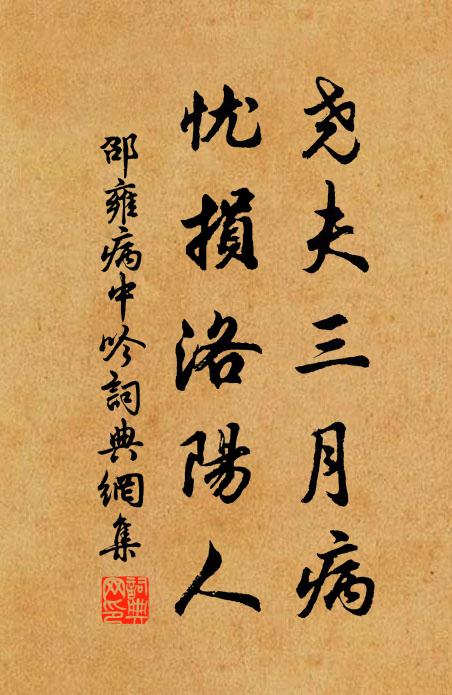 尧夫三月病
忧損洛陽人
邵雍病中吟詞典網集
詞典
网印